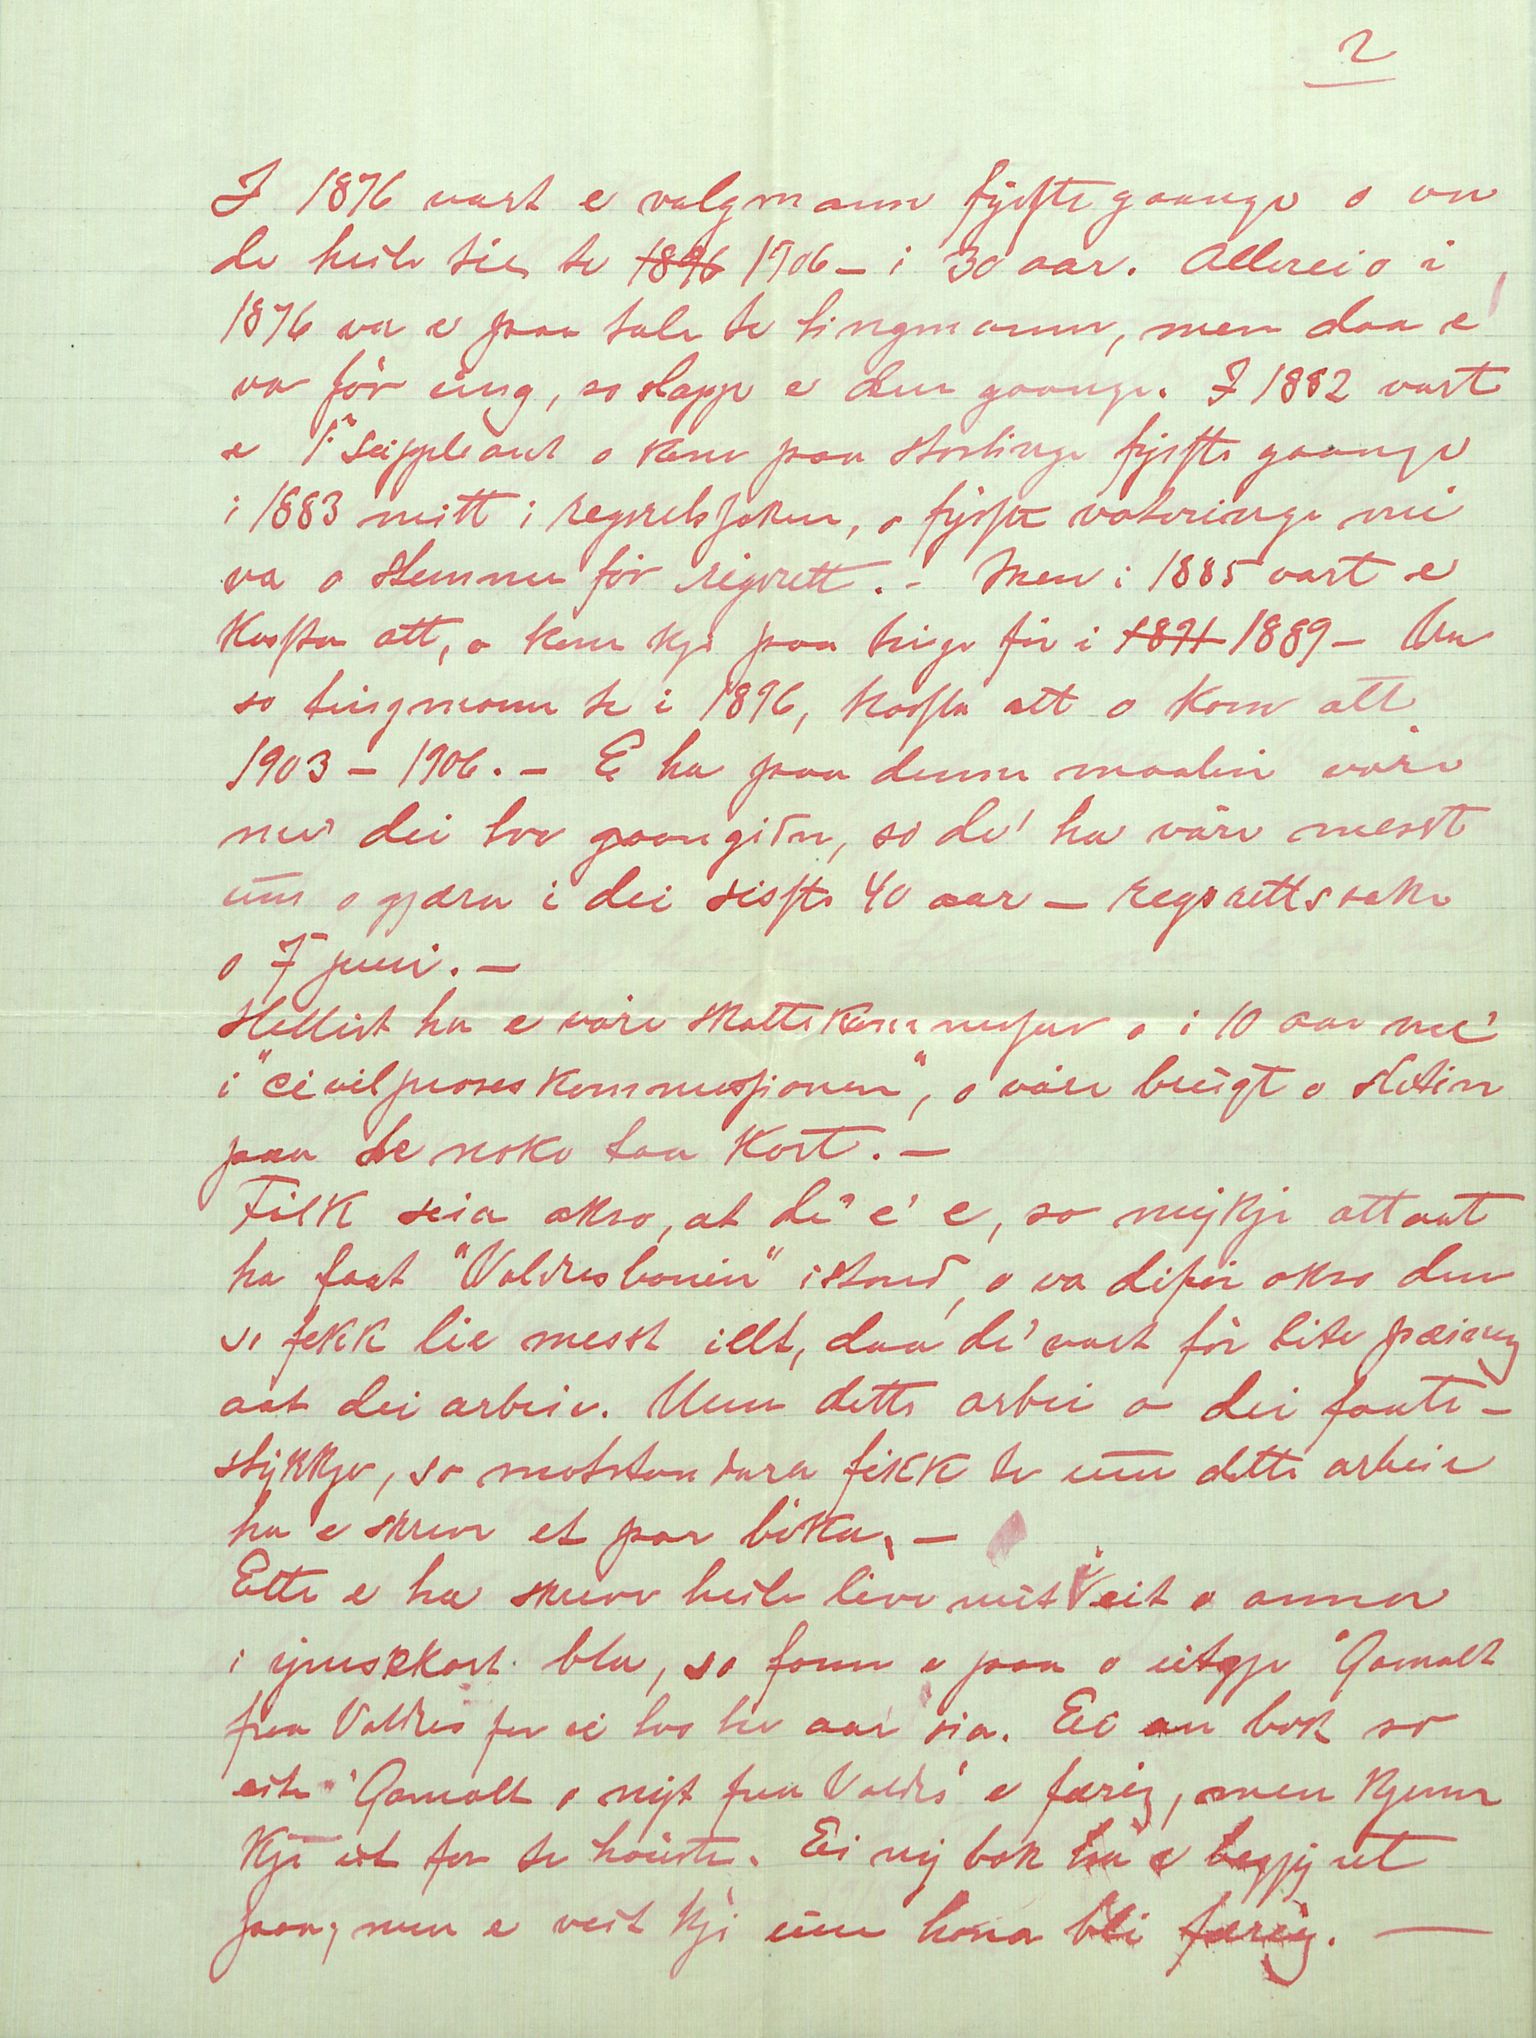 2
I 1876 vart e valgmann fysste gaange o va
de heile tie te ~~1896~~ 1906 – i 30 aar. Allereio i
1876 va e paa tale te tingmann, men daa e
va før ung, so slapp e den gaange. I 1882 vart
e 1. suppleant o kom paa Stortinge fysste gaange
i 1883 mitt i regsretssaken, o fysste voteringe mi
va o stemme før rigsrett. – Men i 1885 vart e
kasta att, o kom kji paa tinge før i ~~1891~~ 1889 – Va
so tingmann te i 1896, kasta att o kom att
1903 – 1906. – E ha paa denne maatin vøre
me' dei tvo gaangidn, so de' ha vøre messt
um o gjæra i dei sisste 40 aar – regsrettssake
o 7 juni. –
Hellist ha e vøre skattekommissær o i 10 aar me'
i "Civilproseskommissjonen", o vøre brugt o slitin
paa te noko taa kort. –
Folk seia okso, at de' e' e, so mykji attaat
ha faat "Valdresbanen" istand, o va difør okso den
so fekk lie messt illt, daa de' vart før lite pæing
aat dei arbeie. Um dette arbei o dei faute-
stykkje, so motstandara fekk te um dette arbeie
ha e skreve et par bøka. –
Ette e ha skreve heile live mit i eit o anna
i ymsekkart bla, so fann e paa o utgje "Gamalt
fraa Valdres" fer ei tvo tri aar sia. Ei an bok so
eite "Gamalt o nyt fraa Valdres" e færig, men kjem
kji ut før te høuste. Ei ny bok ha e begyjt
paa, men e veit kji um hona bli færig. –